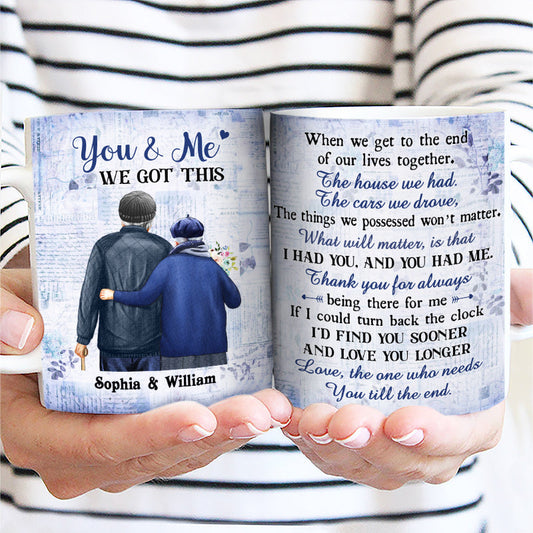 You & Me
WE GOT THIS
Sophia & William
When we get to the end
of our lives together.
The house we had.
The cars we drove,
The things we possessed won't matter.
What will matter, is that
I HAD YOU, AND YOU HAD ME.
Thank you for always
being there for me
If I could turn back the clock
I'D FIND YOU SOONER
AND LOVE YOU LONGER
Love, the one who needs
You till the end.